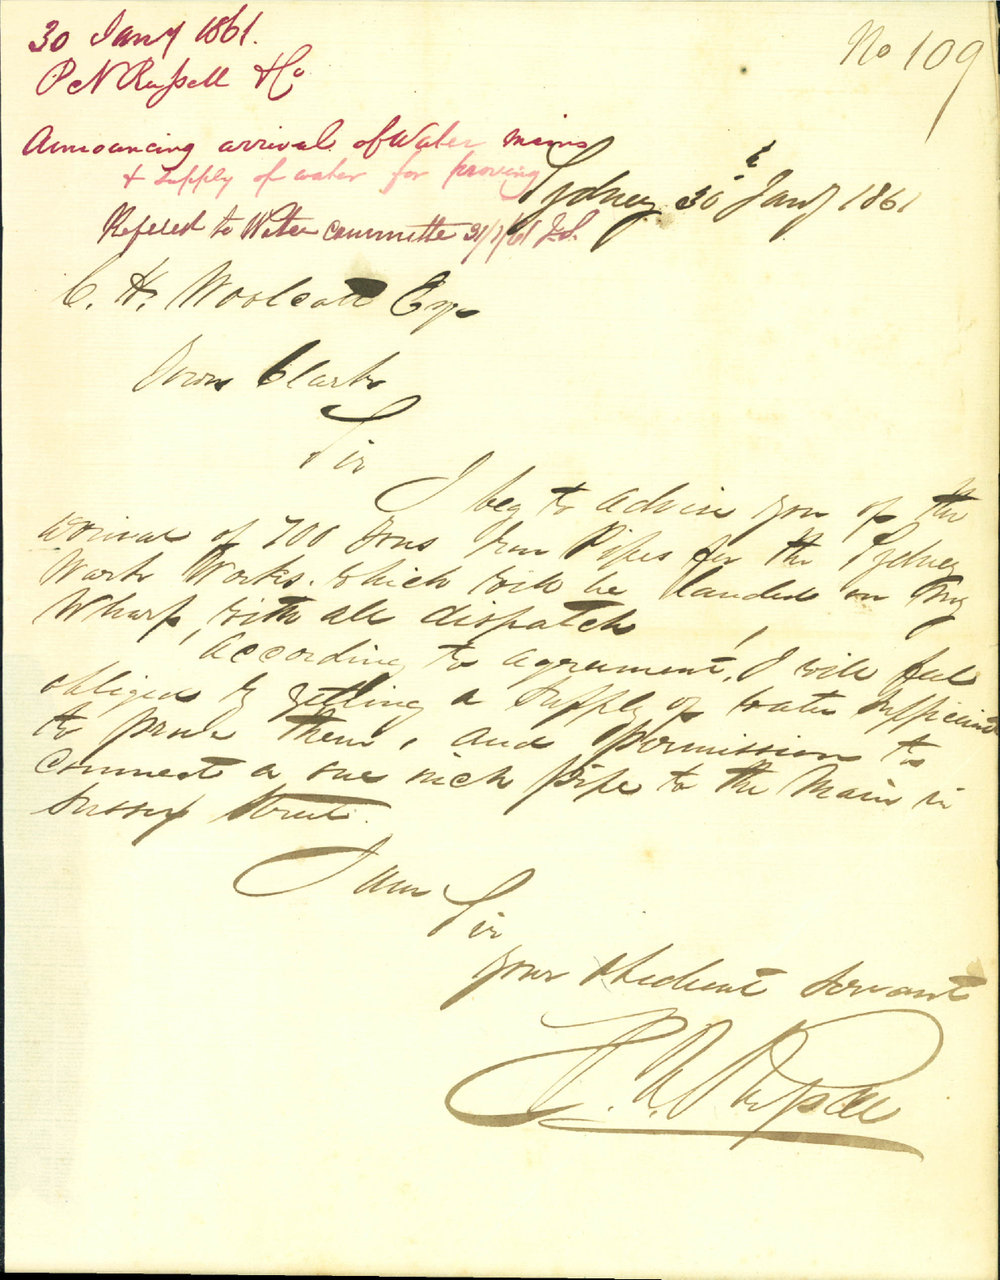 30 Jany 1861.
P N Russell & Co
No 109
Announcing arrival of Water mains
& supply of water for proving
Refered to Water Committee 31/1/61
Sydney 30th Jany 1861
C. H. Woolcott Esqr
Town Clerk
Sir
I beg to advise you of the
arrival of 700 Tons Iron Pipes for the Sydney
Water Works. which will be landed on my
Wharf, with all dispatch
According to agreement, I will feel
obliged by getting a supply of water sufficient
to prove them, and permission to
connect a one inch pipe to the Main in
Sussex Street.
I am Sir
your obedient servant
P. N. Russell